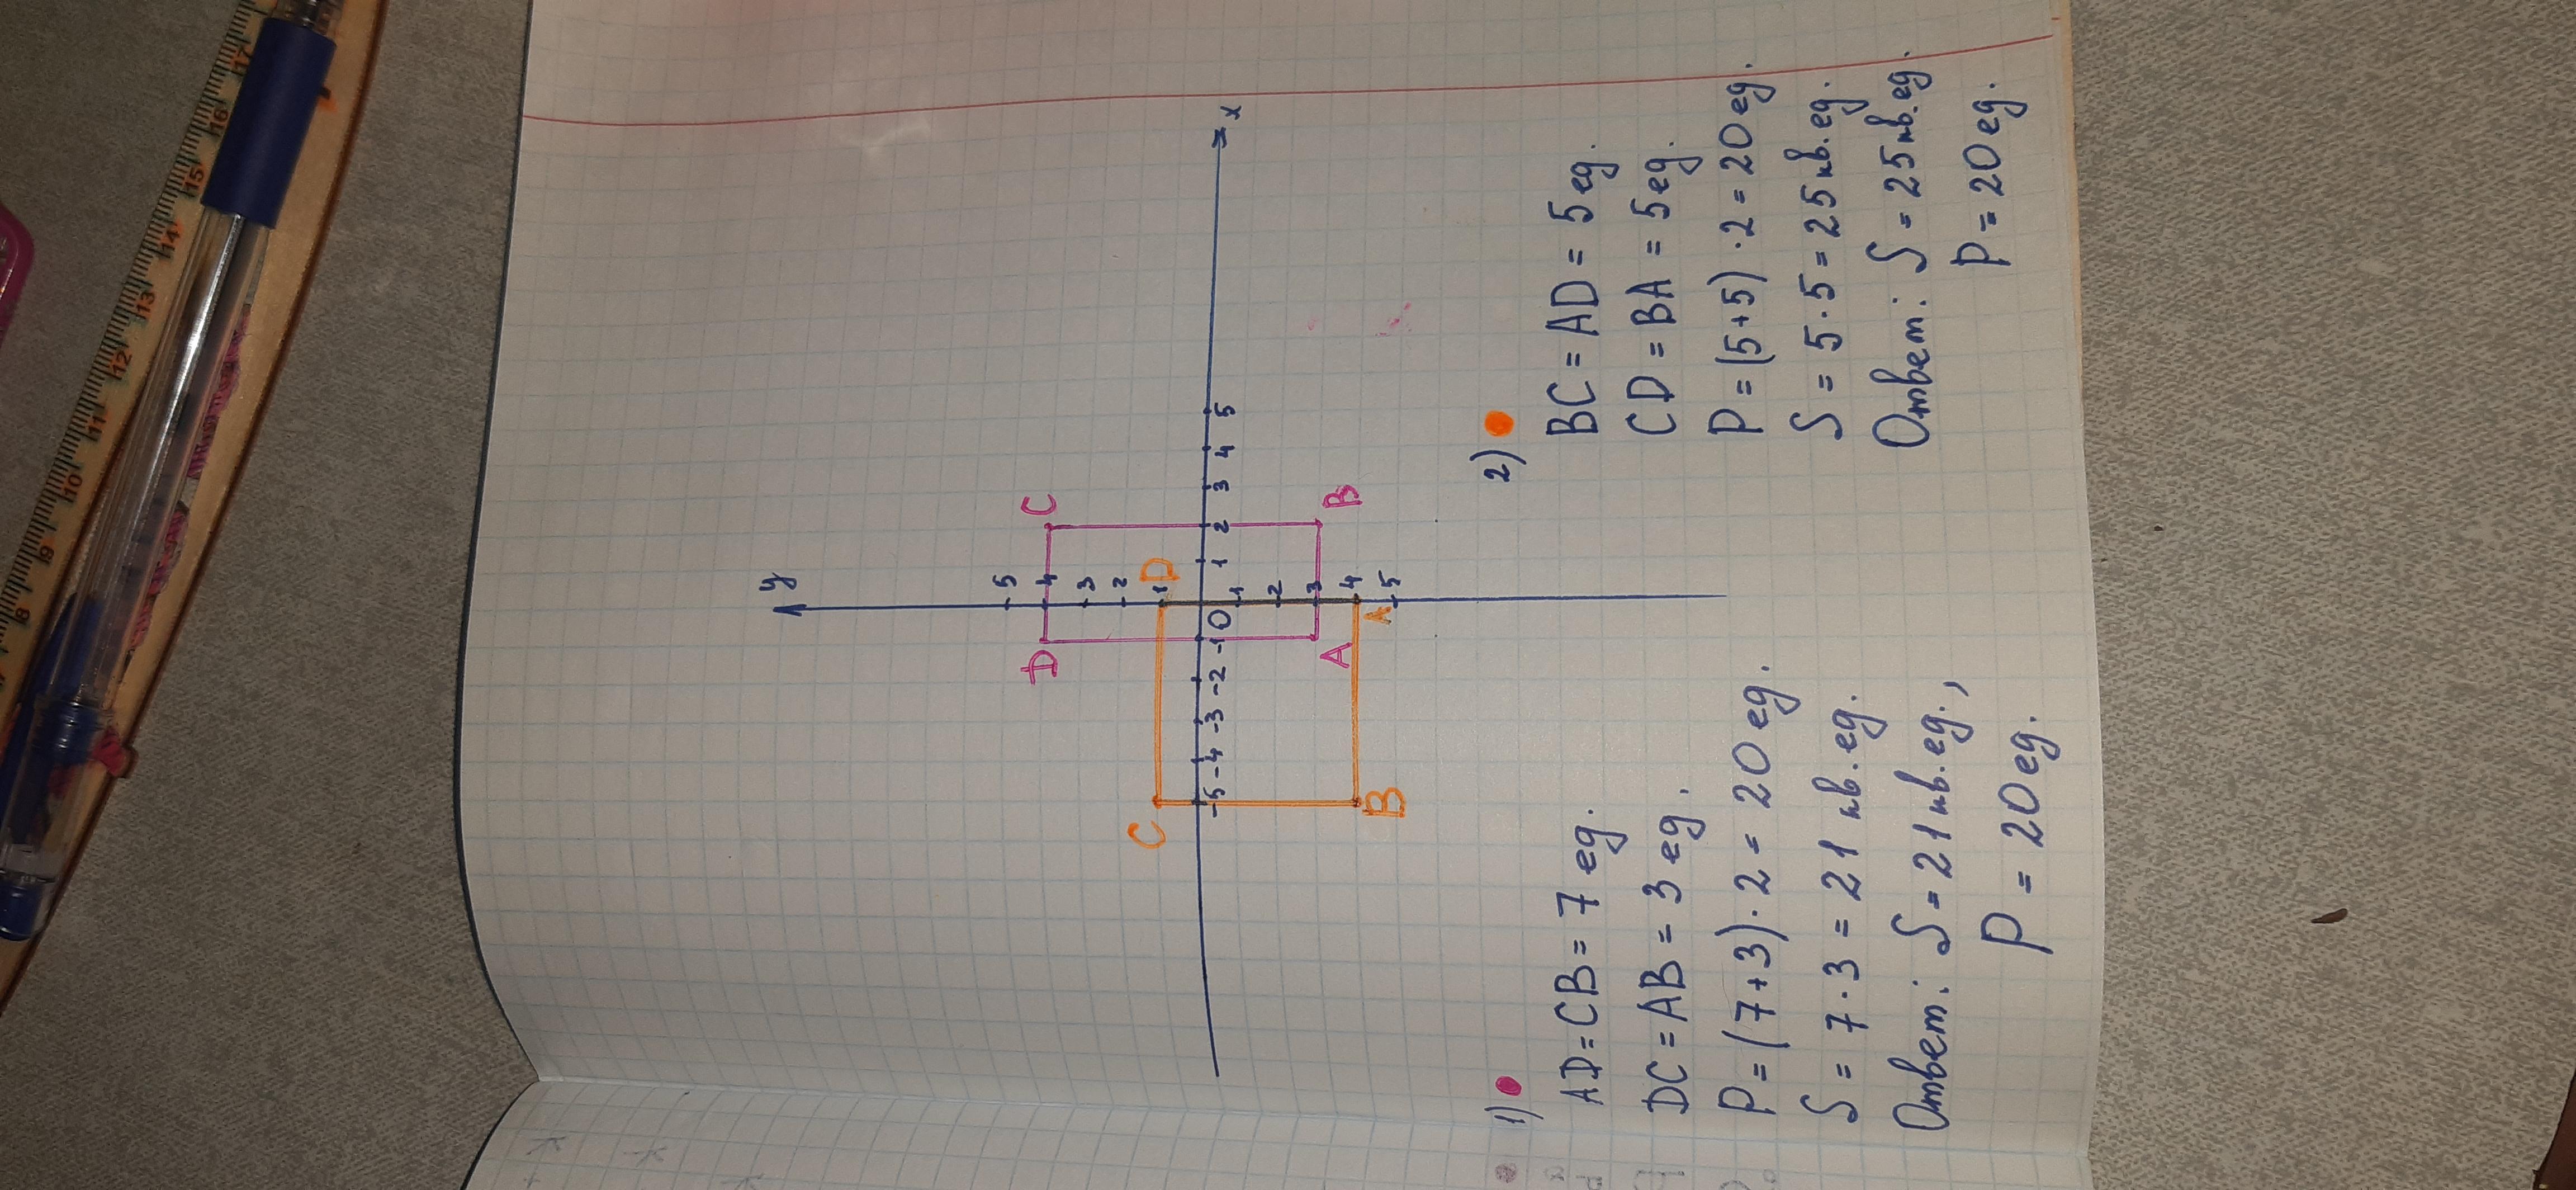 y
5
4
3
2
1
C
D
D
C
-5 -4 -3 -2 -1 0 1 2 3 4 5 x
1
2
3
4
5
A
B
B
A
1)
AD = CB = 7 ед.
DC = AB = 3 ед.
P = (7+3) · 2 = 20 ед.
S = 7 · 3 = 21 кв. ед.
Ответ: S = 21 кв. ед.,
P = 20 ед.
2)
BC = AD = 5 ед.
CD = BA = 5 ед.
P = (5+5) · 2 = 20 ед.
S = 5 · 5 = 25 кв. ед.
Ответ: S = 25 кв. ед.
P = 20 ед.
8 9 10 11 12 13 14 15 16 17